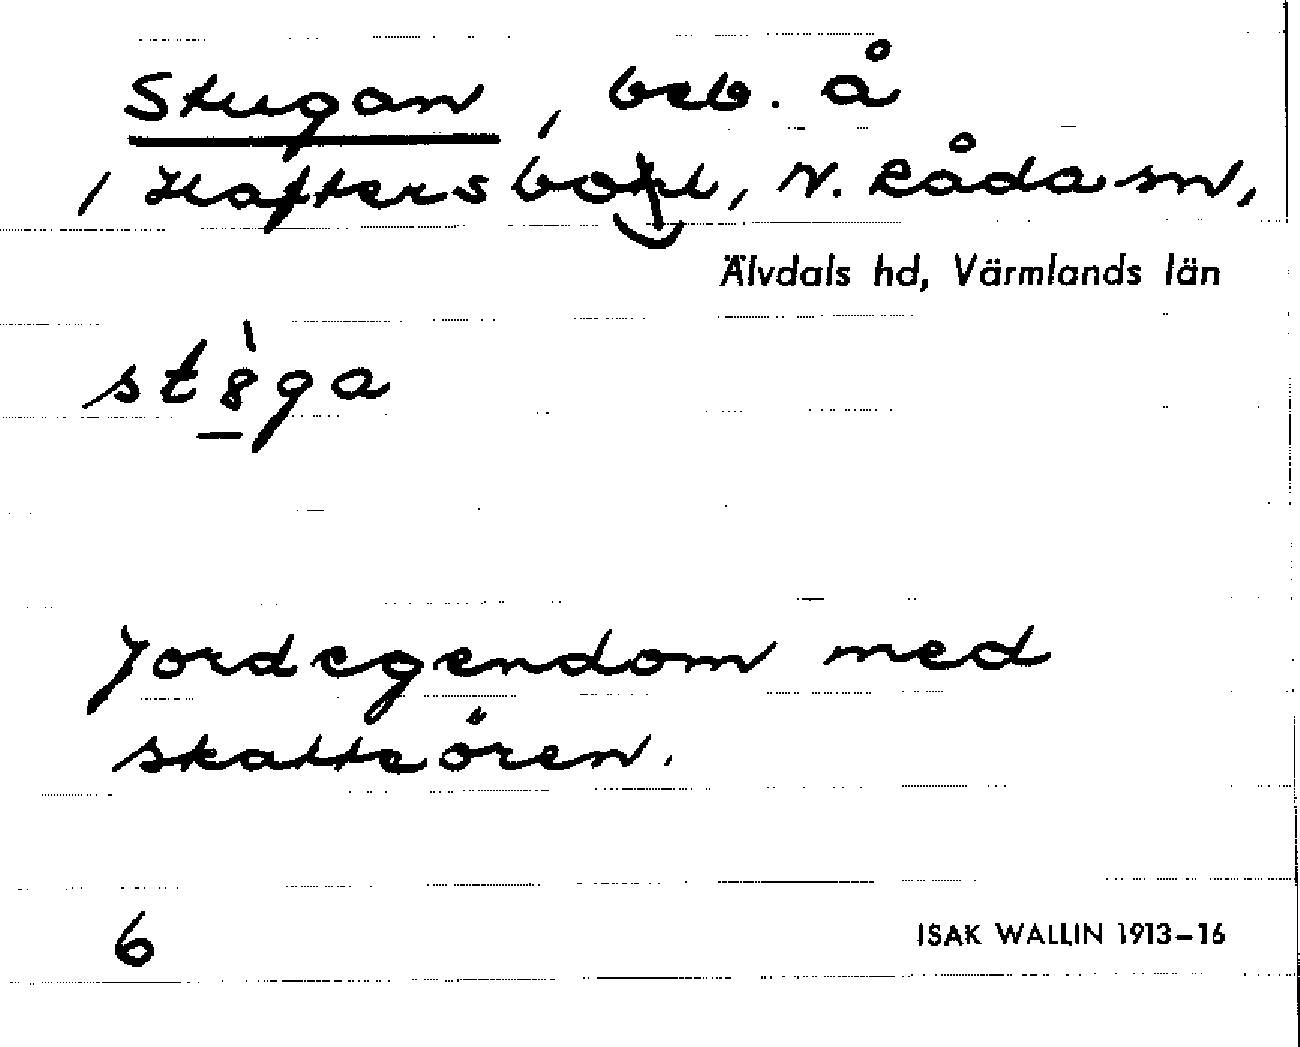 Stugan, beb. å
/ Haftersbol, N. Råda sn,
Älvdals hd, Värmlands län
st8̲̀ga
Jordegendom med
skatteören.
6
ISAK WALLIN 1913–16